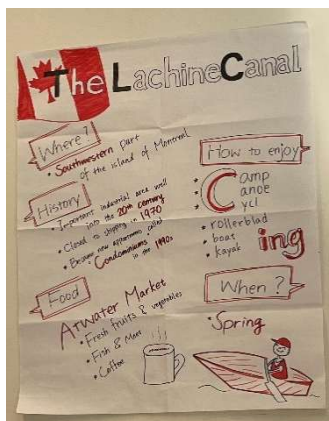 The Lachine Canal
Where?
• Southwestern part
of the island of Montreal
History
• Important industrial area well
into the 20th century
• Closed to shipping in 1970
• Became new apartments called
Condominiums
in the 1990s
Food
Atwater Market
• Fresh fruits & vegetables
• Fish & Meat
• Coffee
How to enjoy
• Camp
• Canoe
• Cycl
• rollerblad
• boat
• kayak
ing
When?
• Spring